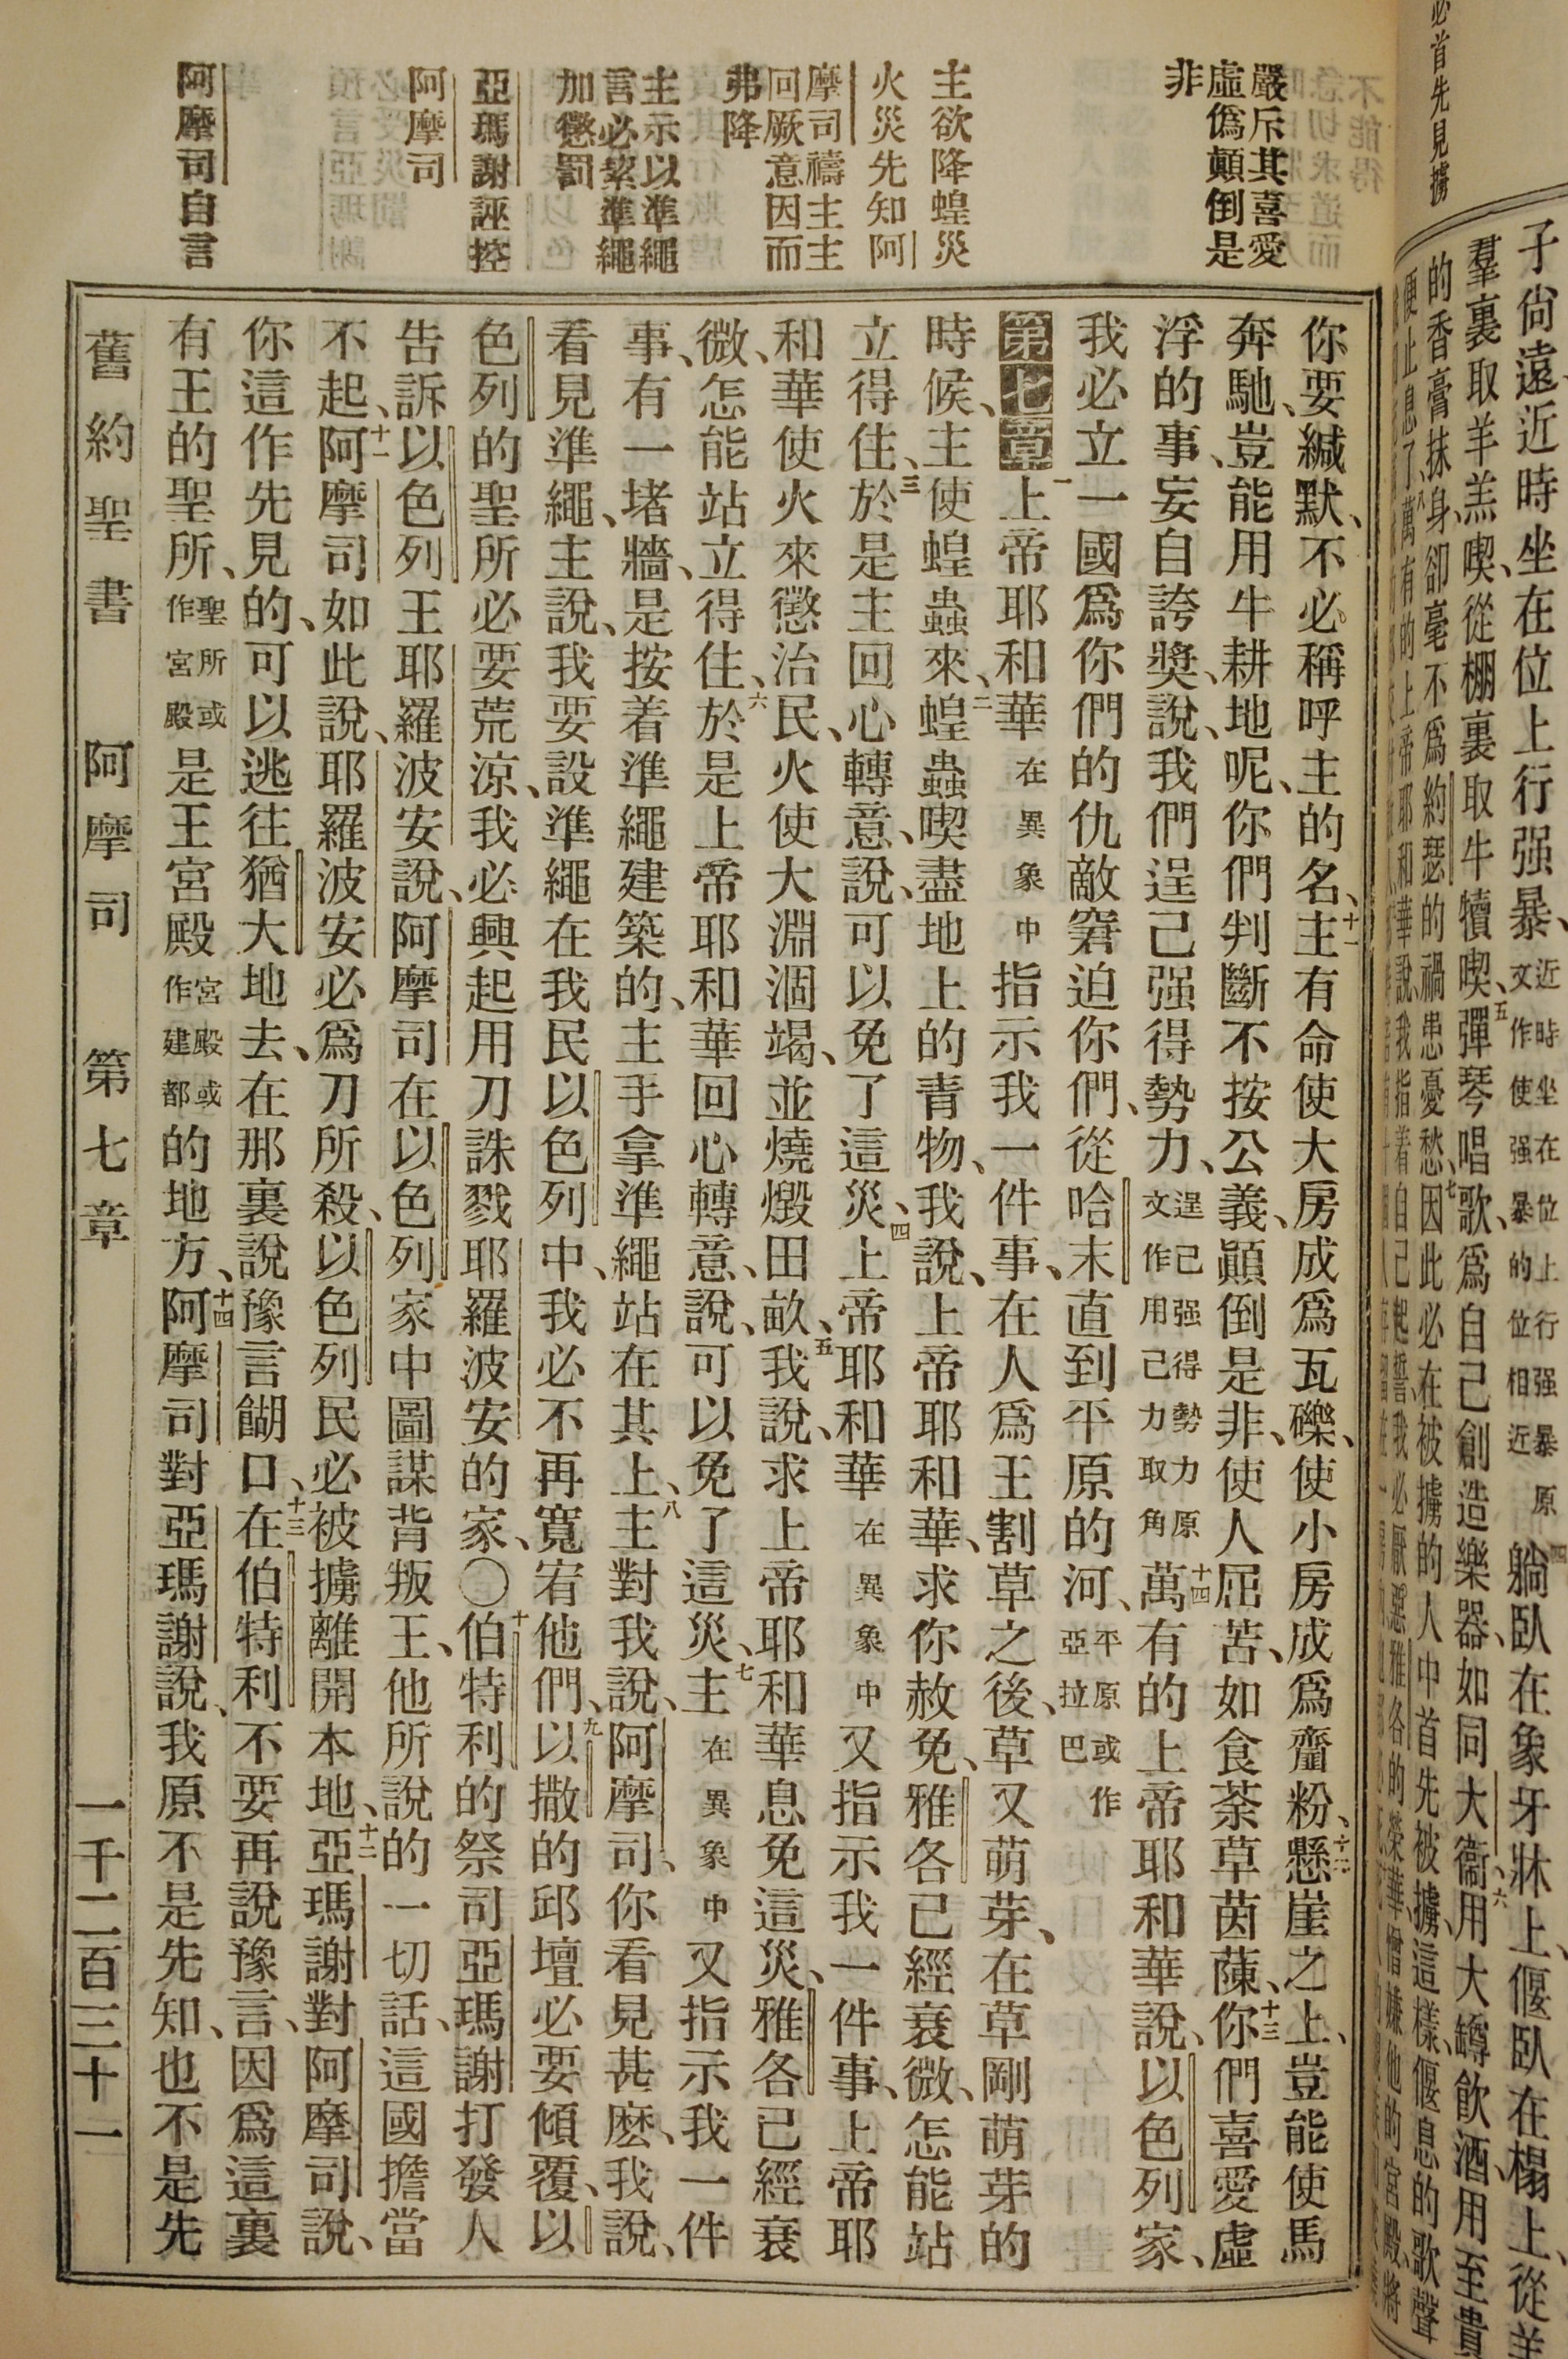 必首先見擄
子尙遠、近時坐在位上行强暴、近時坐在位上行强暴原文作使强暴的位相近四躺臥在象牙牀上、偃臥在榻上、從羊
羣裏取羊羔喫、從棚裏取牛犢喫、五彈琴唱歌、爲自己創造樂器、如同大衞、六用大罇飮酒、用至貴
的香膏抹身、卻毫不爲約瑟的禍患憂愁、七因此必在被擄的人中首先被擄、這樣偃息的歌聲
便止息了、八萬有的上帝耶和華說、我指着自己起誓、我必厭惡雅各的榮華、憎嫌他的宮殿、將
嚴斥其喜愛
虛僞顚倒是
非
主欲降蝗災
火災先知阿
摩司禱主主
回厥意因而
弗降
主示以準繩
言必案準繩
加懲罰
亞瑪謝誣控
阿摩司
阿摩司自言
你要緘默、不必稱呼主的名、十一主有命使大房成爲瓦礫、使小房成爲齏粉、十二懸崖之上、豈能使馬
奔馳、豈能用牛耕地呢、你們判斷不按公義、顚倒是非、使人屈苦、如食荼草茵蔯、十三你們喜愛虛
浮的事、妄自誇獎、說、我們逞己强得勢力、逞己强得勢力原文作用己力取角十四萬有的上帝耶和華說、以色列家、
我必立一國爲你們的仇敵、窘迫你們、從哈末直到平原的河、平原或作亞拉巴
第七章一上帝耶和華在異象中指示我一件事、在人爲王割草之後、草又萌芽、在草剛萌芽的
時候、主使蝗蟲來、二蝗蟲喫盡地上的青物、我說、上帝耶和華、求你赦免、雅各已經衰微、怎能站
立得住、三於是主回心轉意、說、可以免了這災、四上帝耶和華在異象中又指示我一件事、上帝耶
和華使火來懲治民、火使大淵涸竭、並燒燬田畝、五我說、求上帝耶和華息免這災、雅各已經衰
微、怎能站立得住、六於是上帝耶和華回心轉意、說、可以免了這災、七主在異象中又指示我一件
事、有一堵牆、是按着準繩建築的、主手拿準繩站在其上、八主對我說、阿摩司、你看見甚麽、我說、
看見準繩、主說、我要設準繩在我民以色列中、我必不再寬宥他們、九以撒的邱壇必要傾覆、以
色列的聖所必要荒涼、我必興起用刀誅戮耶羅波安的家、○十伯特利的祭司亞瑪謝打發人
告訴以色列王耶羅波安說、阿摩司在以色列家中圖謀背叛王、他所說的一切話、這國擔當
不起、十一阿摩司如此說、耶羅波安必爲刀所殺、以色列民必被擄離開本地、十二亞瑪謝對阿摩司說、
你這作先見的、可以逃往猶大地去、在那裏說豫言餬口、十三在伯特利不要再說豫言、因爲這裏
有王的聖所、聖所或作宮殿是王宮殿宮殿或作建都的地方、十四阿摩司對亞瑪謝說、我原不是先知、也不是先
舊約聖書 阿摩司 第七章 一千二百三十一